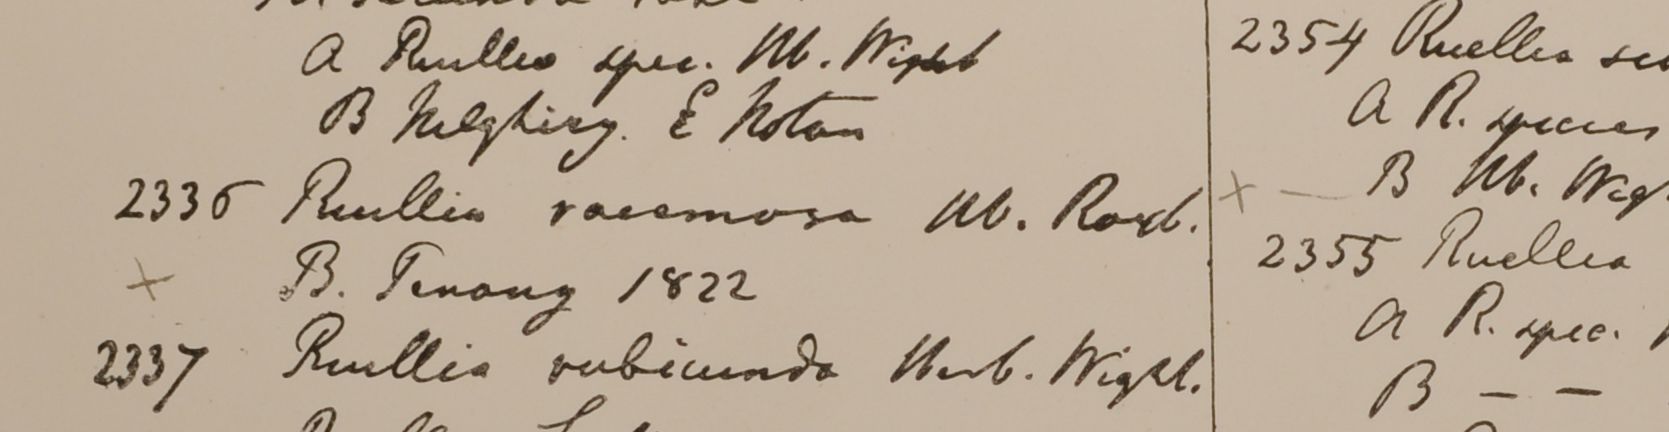 A Ruellia spec. Hb. Wight
B Nelghiry. E Notan
2336 Ruellia racemosa Hb. Roxb.
B. Penang 1822
2337 Ruellia rubicunda Herb. Wight.
2354 Ruellia
A R. species
B Hb. Wigh
2355 Ruellia
A R. spec.
B — —